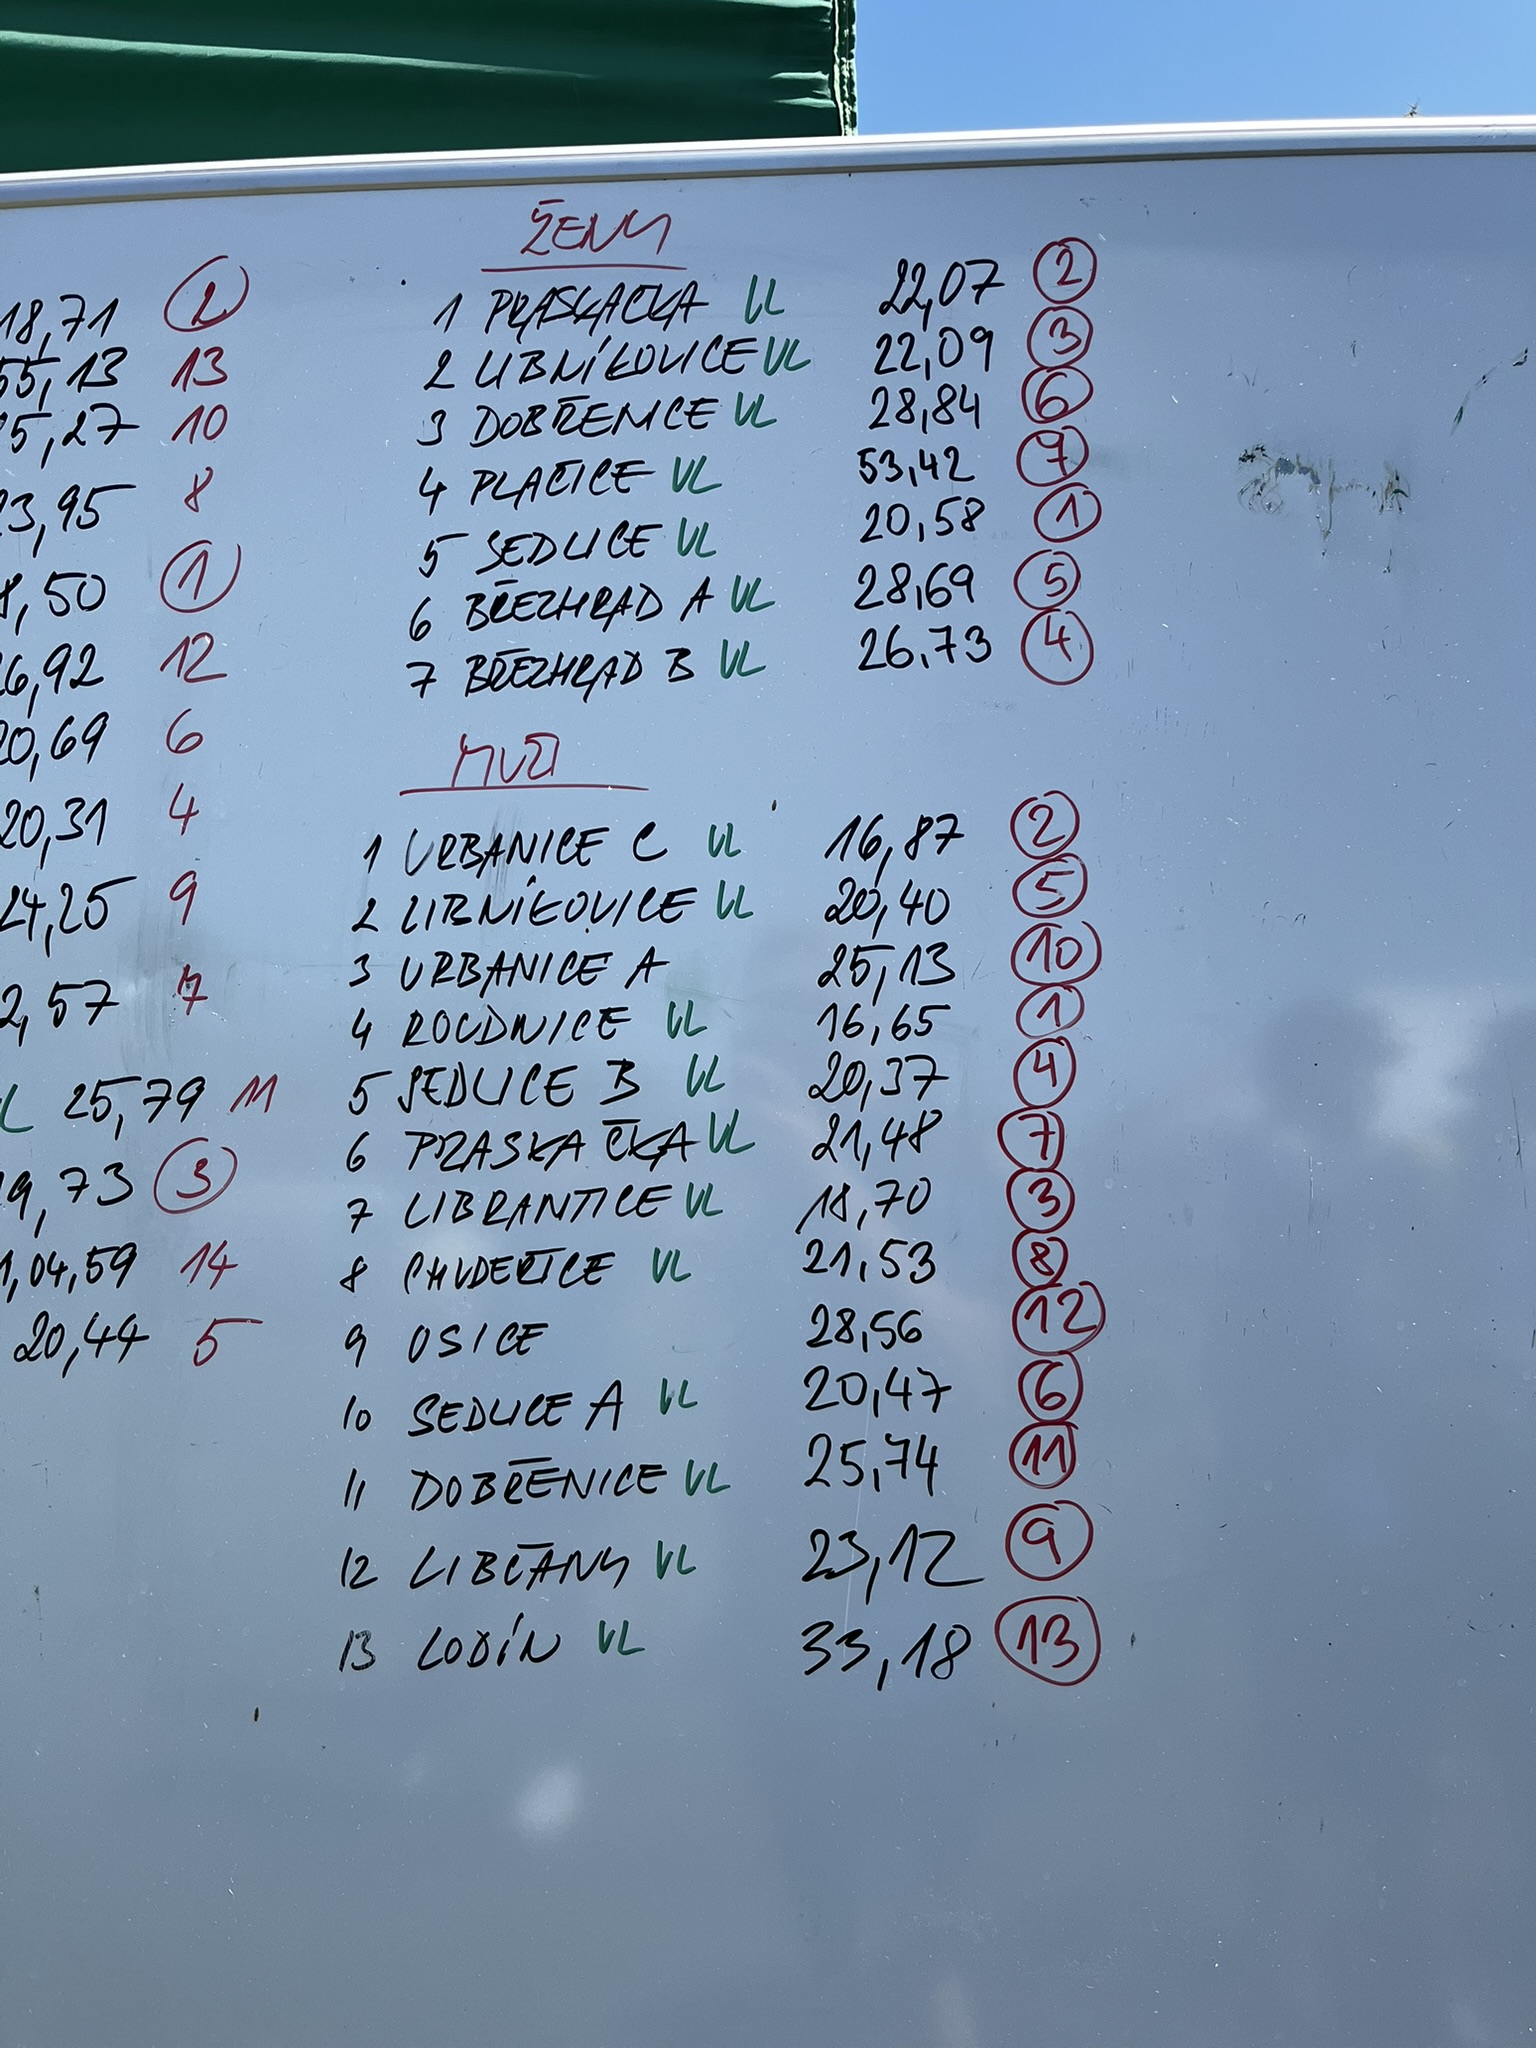 18,71 2
55,13 13
25,27 10
23,95 8
8,50 1
26,92 12
20,69 6
20,31 4
24,25 9
2,57 7
L 25,79 11
19,73 3
1,04,59 14
20,44 5
ŽENY
1 PRASKAČKA VL 22,07 2
2 LIBNÍKOVICE VL 22,09 3
3 DOBŘENICE VL 28,84 6
4 PLAČICE VL 53,42 7
5 SEDLICE VL 20,58 1
6 BŘEZHRAD A VL 28,69 5
7 BŘEZHRAD B VL 26,73 4
MUŽI
1 URBANICE C VL 16,87 2
2 LIBNÍKOVICE VL 20,40 5
3 URBANICE A 25,13 10
4 ROUDNICE VL 16,65 1
5 SEDLICE B VL 20,37 4
6 PRASKAČKA VL 21,48 7
7 LIBRANTICE VL 18,70 3
8 CHUDEŘICE VL 21,53 8
9 OSICE 28,56 12
10 SEDLICE A VL 20,47 6
11 DOBŘENICE VL 25,74 11
12 LIBČANY VL 23,12 9
13 LODÍN VL 33,18 13